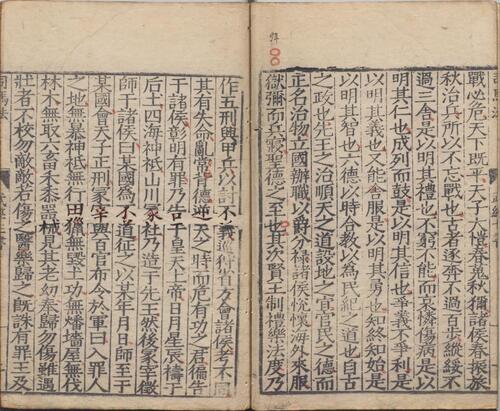 戰必危天下既平天子大愷春蒐秋獮諸侯春振旅
秋治兵所以不忘戰也古者逐奔不過百步縱綏不
過三舍是以明其禮也不窮不能而哀憐傷病是以
明其仁也成列而鼓是以明其信也爭義不爭利是
以明其義也又能舍服是以明其勇也知終知始是
以明其智也六德以時合教以為民紀之道也自古
之政也先王之治順天之道設地之宜官民之德而
正名治物立國辨職以爵分祿諸侯悅懷海外來服
獄彌而兵寢聖德之至也其次賢王制禮樂法度乃
作五刑興甲兵以討不義巡狩省方會諸侯考不同
其有失命亂常背德逆天之時而危有功之君徧告
于諸侯彰明有罪乃告于皇天上帝日月星辰禱于
后土四海神祇山川冢社乃造于先王然後冢宰徵
師于諸侯曰某國為不道征之以某年月日師至于
某國會天子正刑冢宰與百官布令於軍曰入罪人
之地無暴神祇無行田獵無毀土功無燔墻屋無伐
林木無取六畜禾黍器械見其老幼奉歸勿傷雖遇
壯者不校勿敵敵若傷之醫藥歸之既誅有罪王及